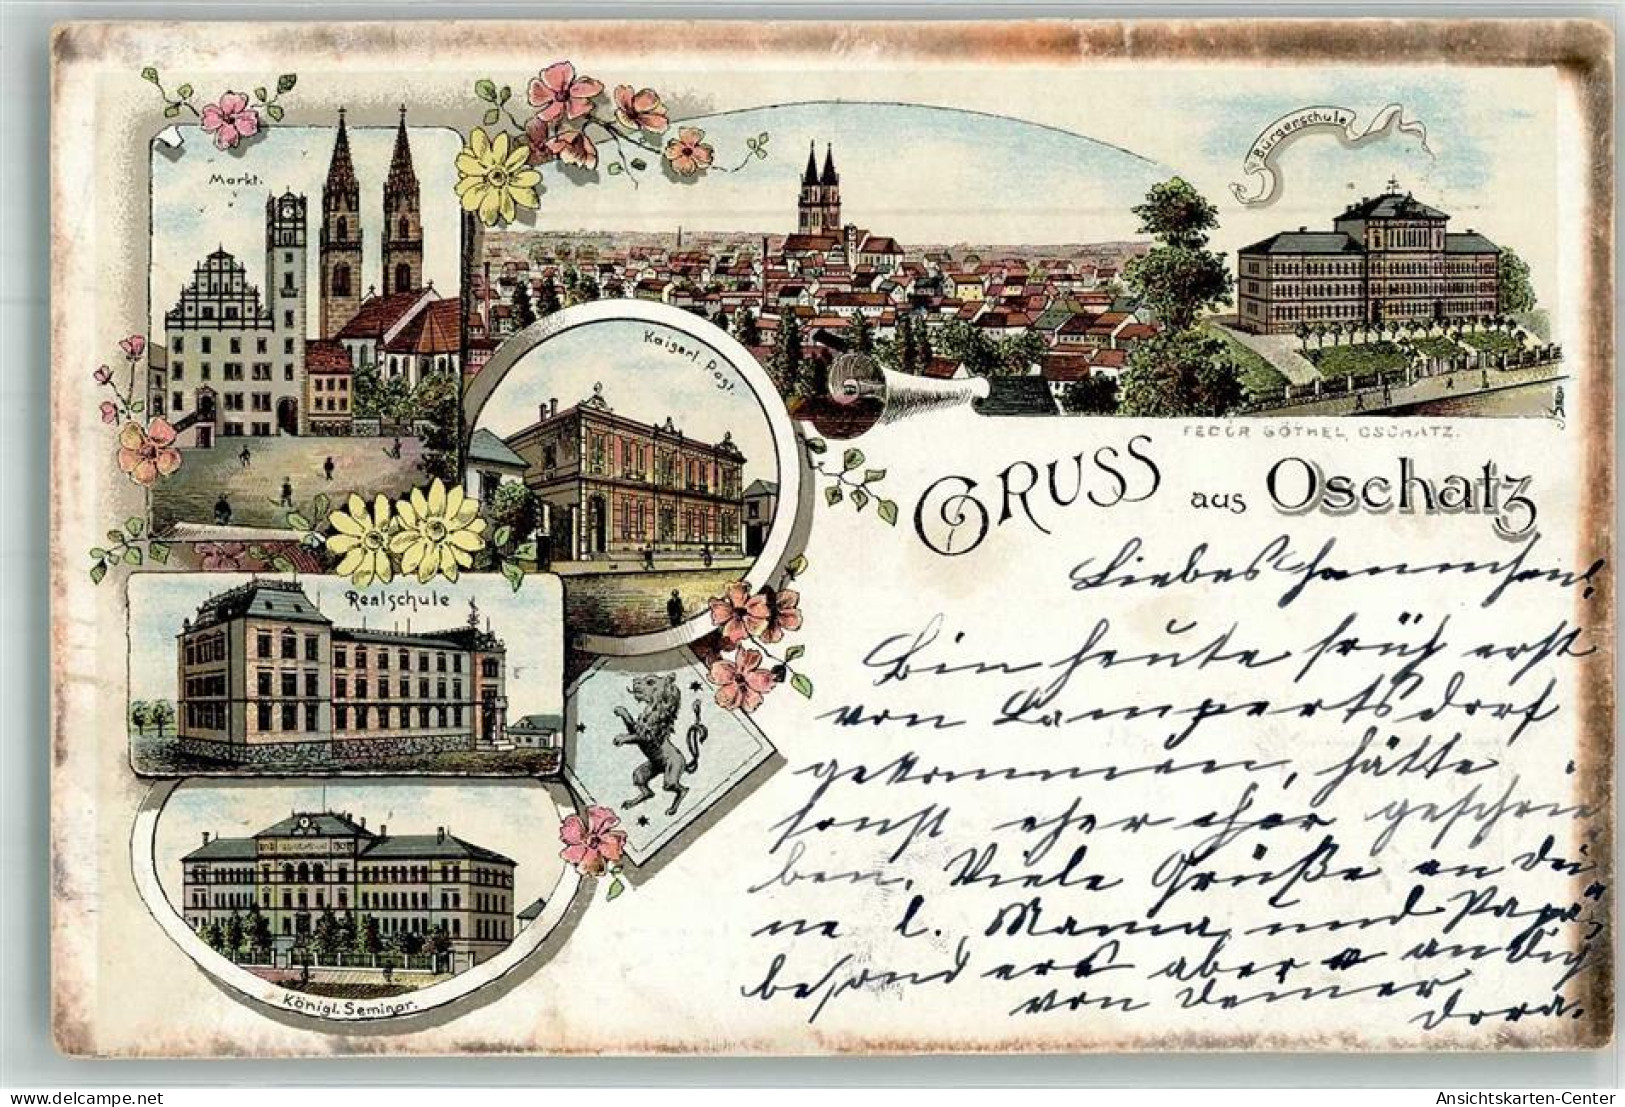 Markt.
Bürgerschule
Kaiserl. Post.
FEDOR GÖTHEL, OSCHATZ.
GRUSS aus Oschatz
Realschule
Königl. Seminar.
Liebes Hannchen!
Bin heute früh erst
von Lampertsdorf
gekommen, hätte
sonst eher geschrie
ben. Viele Grüße an dei
ne l. Mama und Papa,
besonders aber an Dich
von Deiner
Dora.
Ansichtskarten-Center